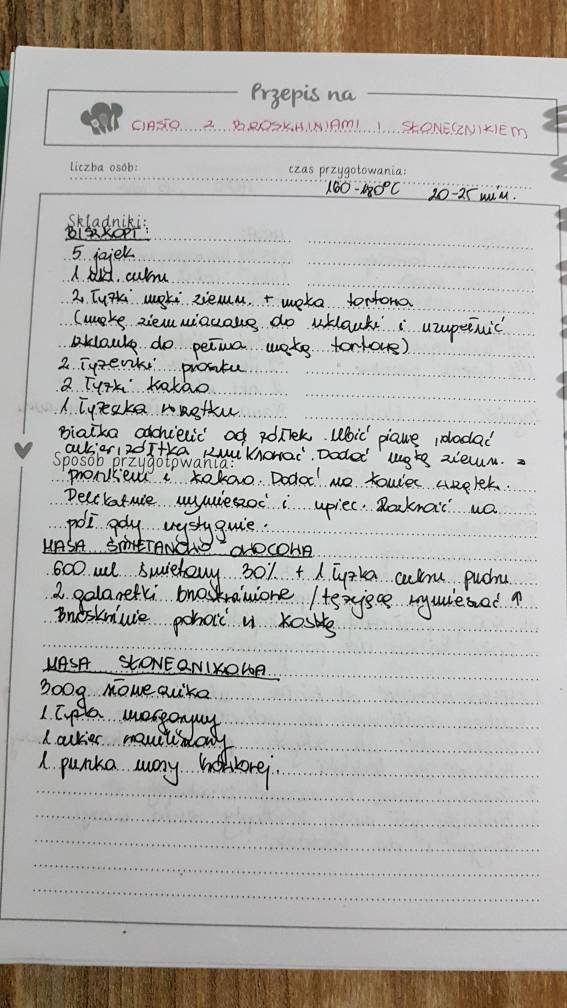 Przepis na
CIASTO Z BROSKWINIAMI I SŁONECZNIKIEM
liczba osób:
czas przygotowania:
160-180°C 20-25 min.
Składniki:
BISZKOPT:
5 jajek
1 szkl. cukru
2 łyżki mąki ziemn. + mąka tortowa
(mąkę ziemniaczaną do szklanki i uzupełnić
szklankę do pełna mąką tortową)
2 łyżeczki proszku
2 łyżki kakao
1 łyżeczka
Białka oddzielić od żółtek. Ubić pianę, dodać
cukier, żółtka zmiksować. Dodać mąkę ziemn. z
Sposób przygotowania:
proszkiem i kakao. Dodać na koniec
Delikatnie wymieszać i upiec. Rozkroić na
pół gdy wystygnie.
MASA ŚMIETANOWO OWOCOWA
600 ml śmietany 30% + 1 łyżka cukru pudru
2 galaretki brzoskwiniowe / tężejące wymieszać ↑
Brzoskwinie pokroić w kostkę
MASA SŁONECZNIKOWA
300g słonecznika
1 łyżka margaryny
1 cukier waniliowy
1 puszka masy krówkowej.